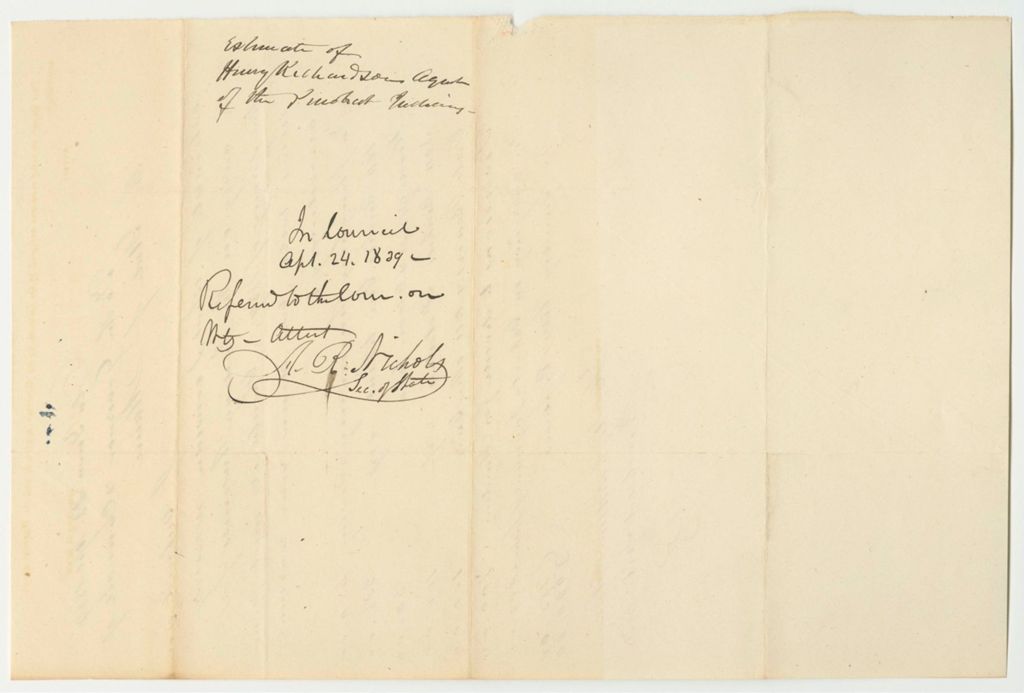 Estimate of
Henry Richardson Agent
of the Penobscot Indians
In Council
Apl. 24. 1839
Referred to the Com. on
Wts - Attest
A. R. Nichols
Sec. of State